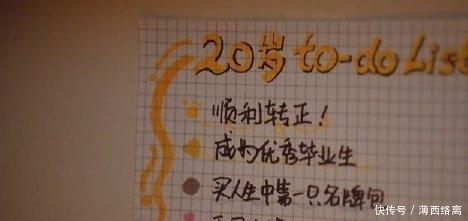 20岁 to-do List
顺利转正!
成为优秀毕业生
买人生中第一只名牌包
快传号 / 薄西络离